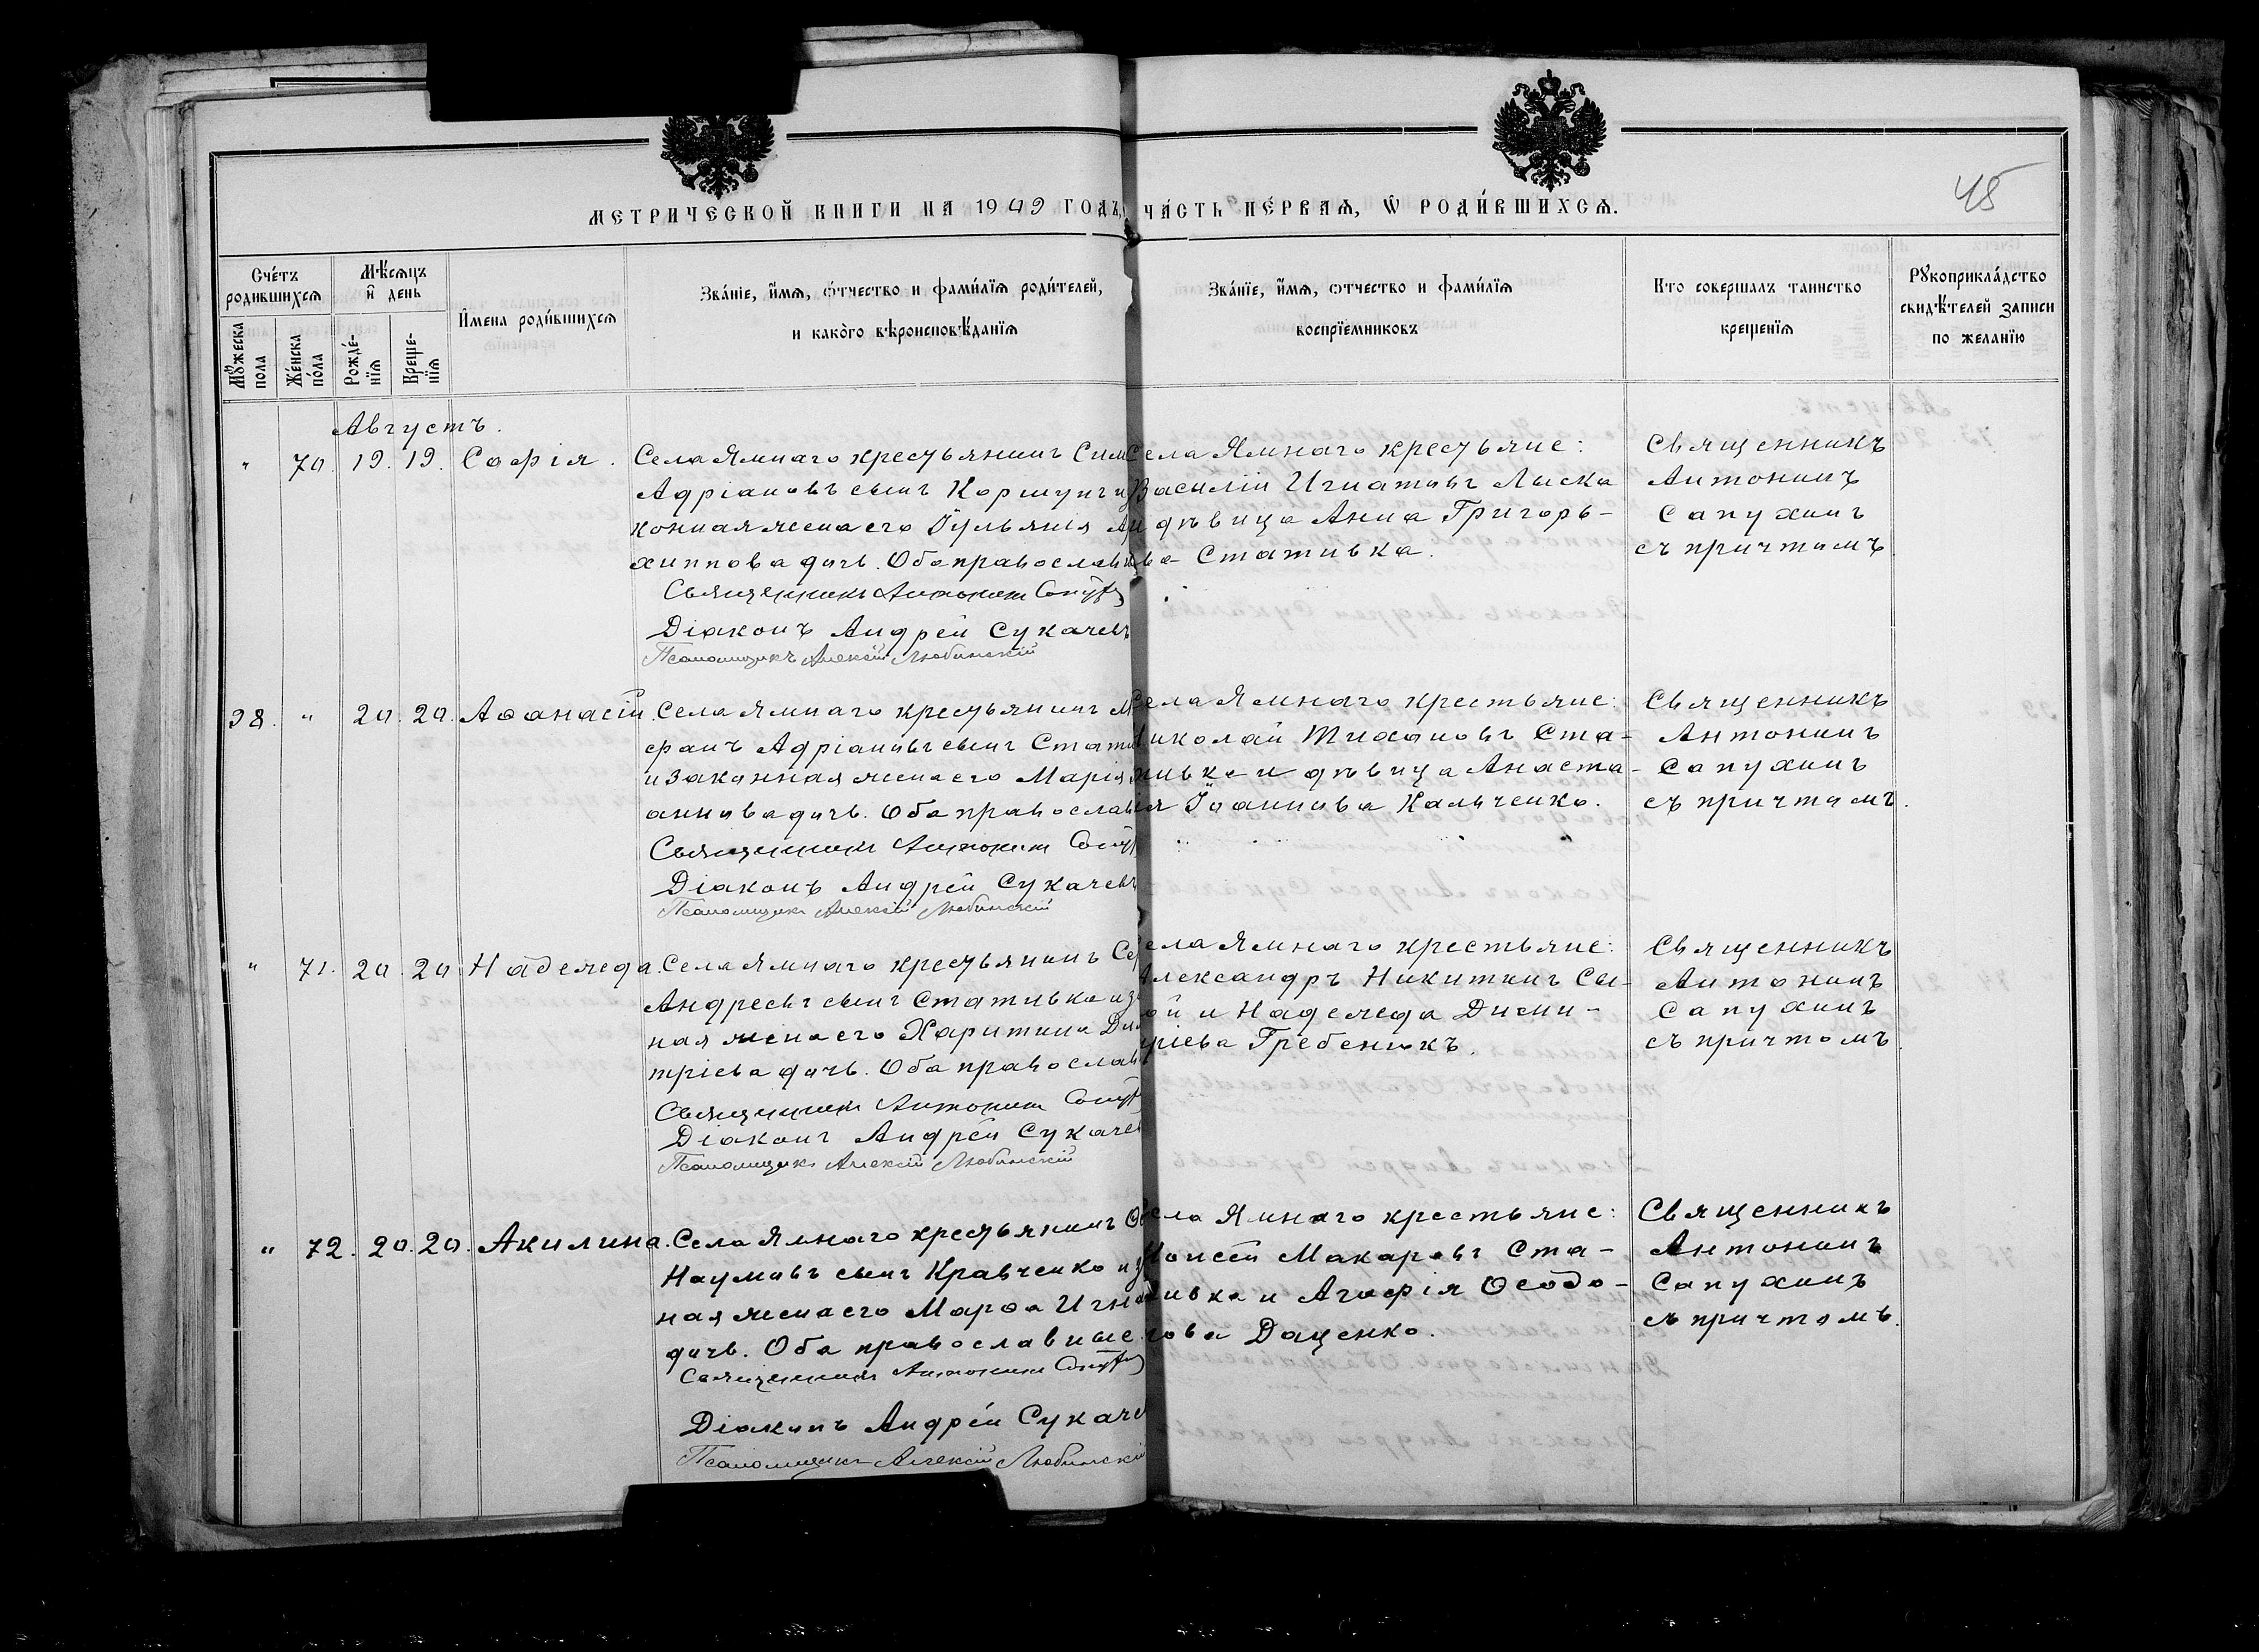 45
МЕТРИЧЕСКОЙ КНИГИ НА 1909 ГОДЪ, ЧА́СТЬ ПЕ́РВАѦ, Ѡ РОДИ́ВШИХСѦ.
Сче́тъ родившихсѧ
Мѣ́сѧцъ и҆ день
И҆мена роди́вшихсѧ
Зва́нїе, и҆́мѧ, ѻ҆́тчество и фами́лїѧ роди́телей,
и како́го вѣроисповѣ́данїѧ
Зва́нїе, и҆́мѧ, ѻтчество и фами́лїѧ
воспрїемниковъ
Кто совершалъ таинство
крещенїѧ
Рꙋкоприкла́дство
свидѣ́телей записи
по желанїю
Мꙋ́жеска пола
Же́нска по́ла
Рожде́-нїѧ
Креще-нїѧ
Августъ.
" 70. 19. 19. Софія.
Села Ямнаго крестьянинъ Сим
Адріановъ сынъ Коршунъ и
конная жена его Іульянія Ар
хиппова дочь. Оба православн
Священникъ Антонинъ Сапух
Діаконъ Андрей Сукачевъ
Псаломщикъ Алексій Любинскій
Села Ямнаго крестьяне:
Василій Игнатовъ Лыска
дѣвица Анна Григорь-
ва Стативка.
Священникъ
Антонинъ
Сапухинъ
съ причтомъ
38. " 20. 20. Аѳанасій.
Села Ямнаго крестьянинъ М
ефанъ Адріановъ сынъ Стати
и законная жена его Марія
аннова дочь. Оба православ
Священникъ Антонинъ Сапух
Діаконъ Андрей Сукачевъ
Псаломщикъ Алексій Любинскій
ела Ямнаго крестьяне:
Николай Тихоновъ Ста-
тивка и дѣвица Анаста-
ія Іоаннова Кальченко.
Священникъ
Антонинъ
Сапухинъ
съ причтомъ.
" 71. 20. 20 Надежда.
Села Ямнаго крестьянинъ Сер
Андреевъ сынъ Стативка и з
ная жена его Харитина Ди
тріева дочь. Оба православ
Священникъ Антонинъ Сапух
Діаконъ Андрей Сукачев
Псаломщикъ Алексій Любинскій
ела Ямнаго крестьяне:
Александръ Никитинъ Сы-
ой и Надежда Дими-
тріева Гребеникъ.
Священникъ
Антонинъ
Сапухинъ
съ причтомъ.
" 72. 20. 20. Акилина.
Села Ямнаго крестьянинъ Ѳ
Наумовъ сынъ Кравченко и з
ная жена его Марѳа Игна
дочь. Оба православные.
Священникъ Антонинъ Сапух
Діаконъ Андрей Сукаче
Псаломщикъ Алексій Любинскій
ела Ямнаго крестьяне:
Моисей Макаровъ Ста-
тивка и Агафія Ѳеодо-
това Даценко.
Священникъ
Антонинъ
Сапухинъ
съ причтомъ.